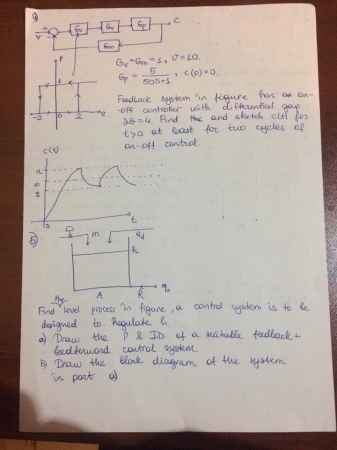 4)
Gc
Gv
Gp
C
r
Gm
P
1
-2
0
2
e
Gv=Gm=1, r=10.
Gp = 5/50s+1 , c(0)=0.
Feedback system in figure has an on-
-off controller with differential gap
2θ=4. Find the and sketch c(t) for
t>0 at least for two cycles of
on-off control.
c(t)
0
t
5)
m
qd
h
A
R
q0
Find the level process in figure, a control system is to be
designed to regulate h.
a) Draw the P & ID of a suitable feedback +
feedforward control system.
b) Draw the block diagram of the system
in part a)